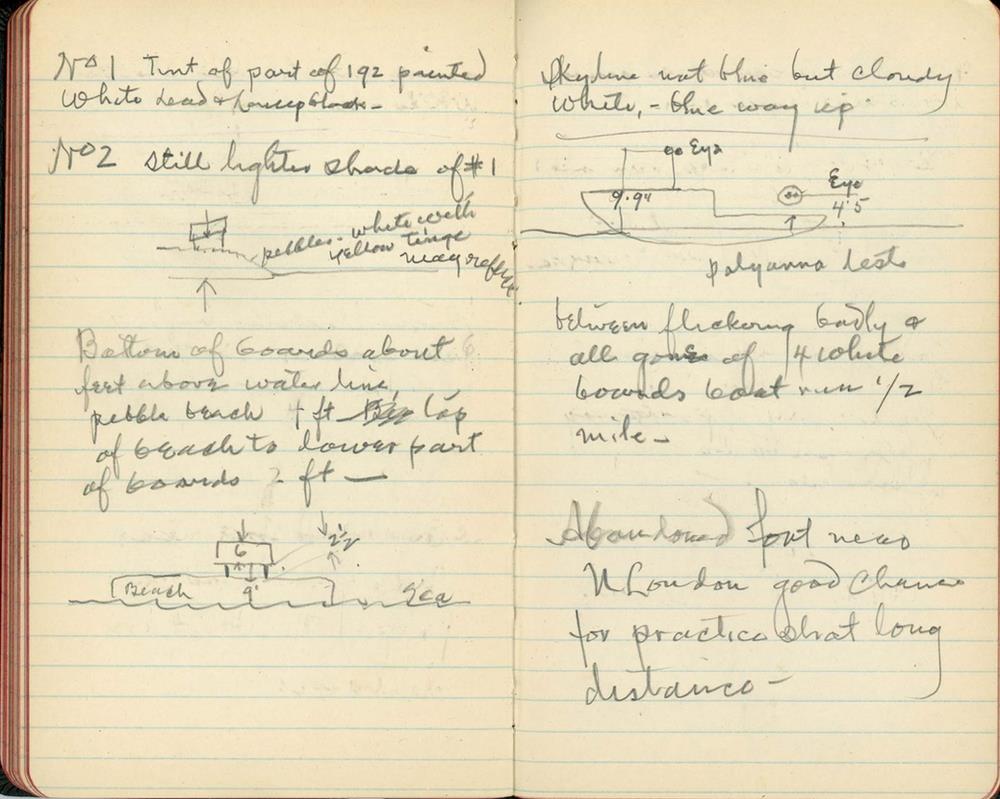 No 1 Tint of part of 192 painted
White Lead & Lampblack -
No 2 Still lighter shade of #1
pebbles - white with
yellow tinge
may reflect
Bottom of boards about 6
feet above water line,
pebble beach 4 ft top
of beach to lower part
of boards 2 ft —
6
2 1/2
Beach 9' Sea
Skyline not blue but cloudy
White, - blue way up
Eye
9.94 Eye
4'5
polyanna tests
between flickering badly &
all gone of 4 White
boards boat run 1/2
mile -
Abandoned Fort near
N London good Chance
for practice shot long
distance -